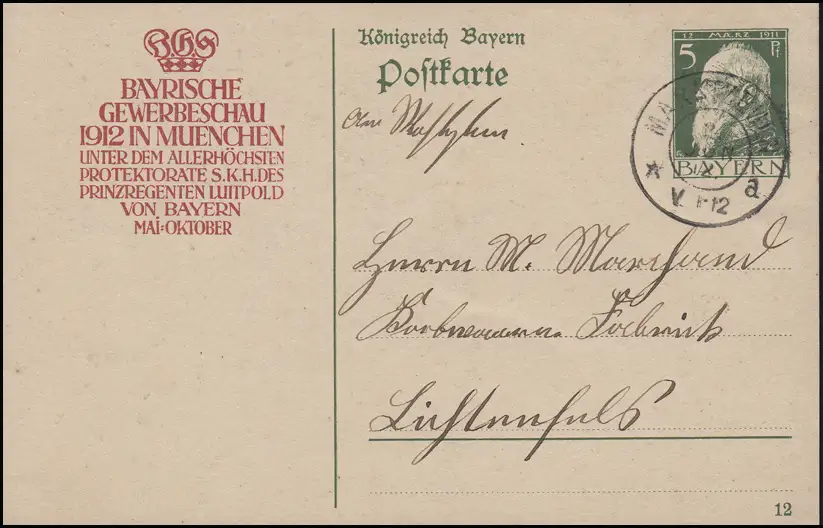 BGS
BAYRISCHE
GEWERBESCHAU
1912 IN MUENCHEN
UNTER DEM ALLERHÖCHSTEN
PROTEKTORATE S.K.H.DES
PRINZREGENTEN LUITPOLD
VON BAYERN
MAI=OKTOBER
Königreich Bayern
Postkarte
12 MÄRZ 1911
5 Pf
BAYERN
V. 1-12
a
Herrn M. Marchand
Korbwaaren Fabrik
Lichtenfels
12